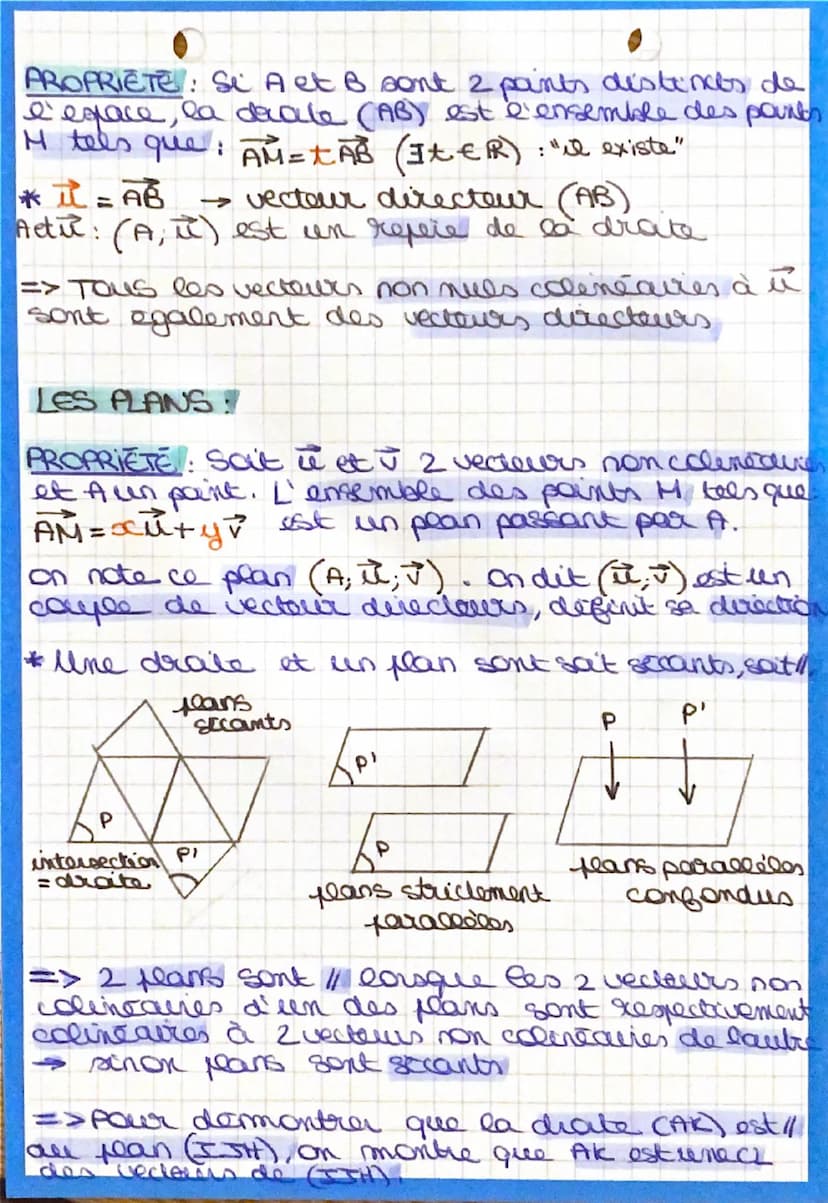 PROPRIÉTÉ : Si A et B sont 2 points distincts de
l'espace, la droite (AB) est l'ensemble des points
M tels que : AM = tAB (∃t ∈ ℝ) : "il existe"
* u = AB → vecteur directeur (AB)
A et u : (A, u) est un repère de la droite
=> Tous les vecteurs non nuls colinéaires à u
sont egalement des vecteurs directeurs
LES PLANS :
PROPRIÉTÉ : Soit u et v 2 vecteurs non colinéaires
et A un point. L'ensemble des points M tels que
AM = xu + yv est un plan passant par A.
on note ce plan (A; u; v). on dit (u, v) est un
couple de vecteur directeurs, définit sa direction
* Une droite et un plan sont soit sécants, soit //.
plans
sécants
P
P'
intersection
= droite
P'
P
plans strictement
parallèles
P
P'
plans parallèles
confondus
=> 2 plans sont // lorsque les 2 vecteurs non
colinéaires d'un des plans sont respectivement
colinéaires à 2 vecteurs non colinéaires de l'autre
→ sinon plans sont sécants
=> Pour démontrer que la droite (AK) est //
au plan (IJH), on montre que AK est une CL
des vecteurs de (IJH).